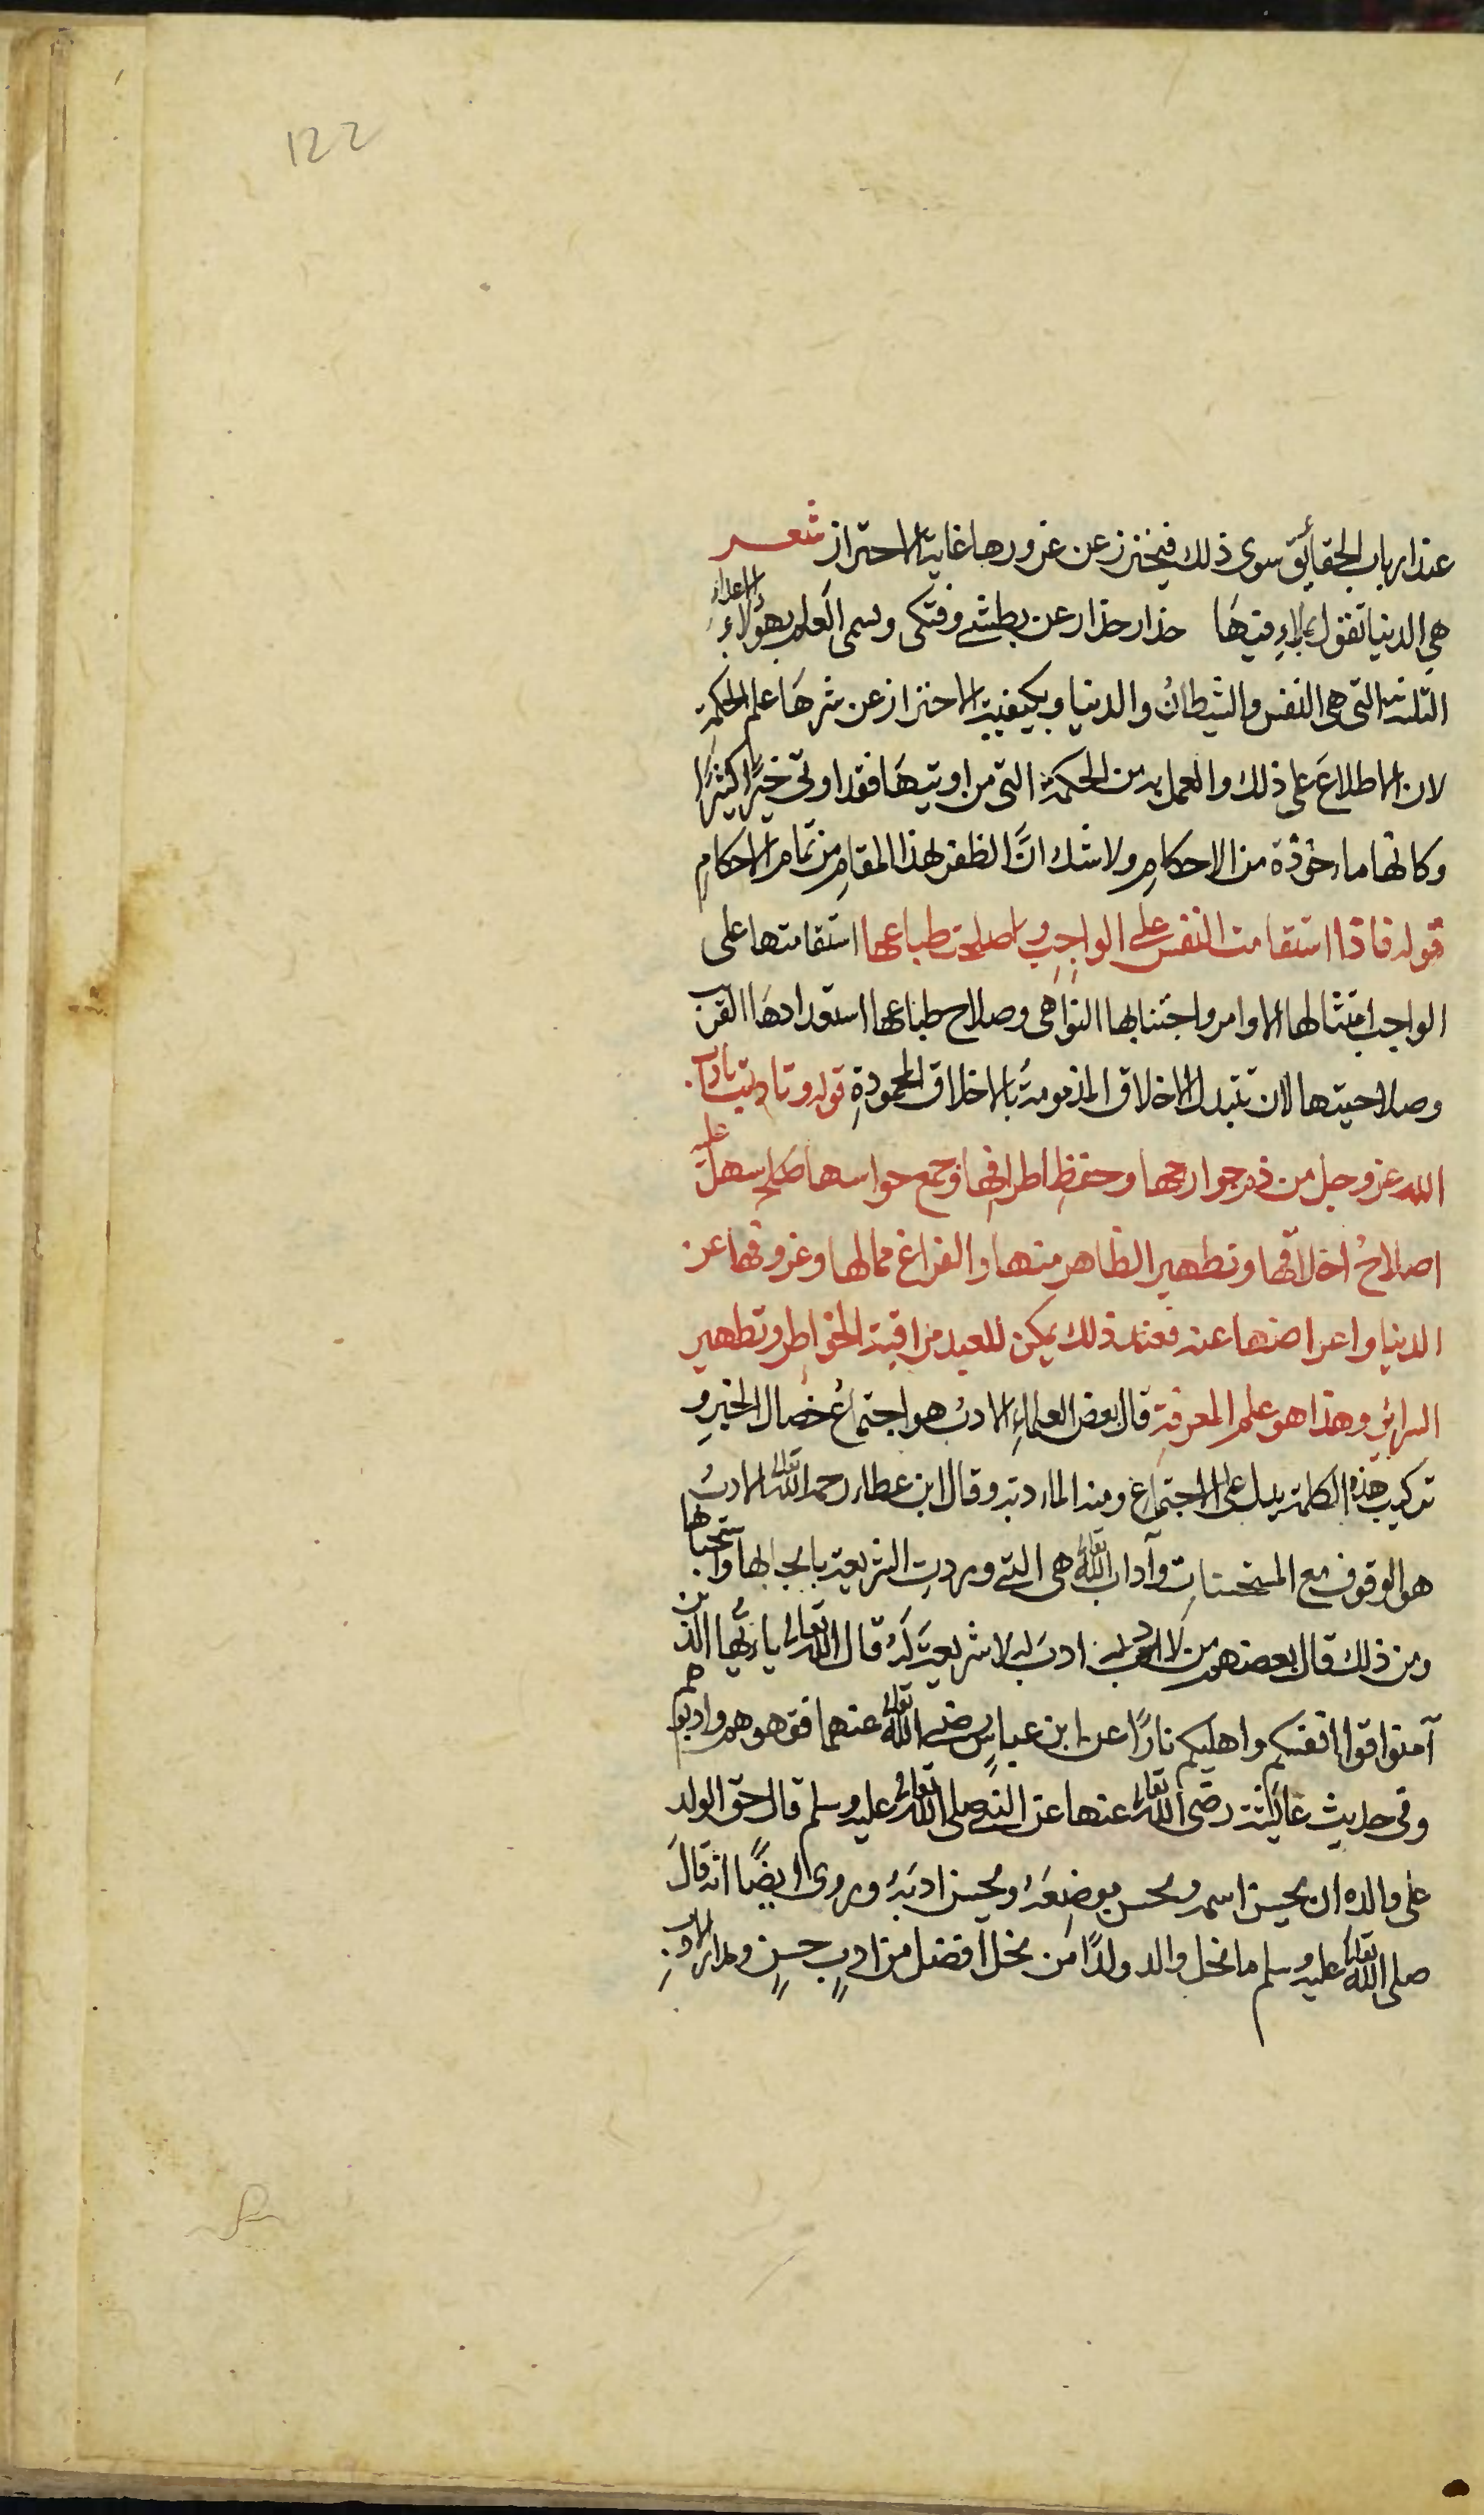 122
عند ارباب الحقائق سوى ذلك فيحترز عن غرورها غاية الاحتراز شعر
هي الدنيا تقول بملاء فيها حذار حذار عن بطشى وفتكى وسمى العلم بهؤلاء الاعداء
الثلثة التى هى النفس والشيطان والدنيا وبكيفية الاحتراز عن شرها علم الحكمة
لان الاطلاع على ذلك والعمل به من الحكمة التى من اوتيها فقد اوتى خيرًا كثيرًا
وكانها ماءخوذة من الاحكام ولا شك انَّ الظفر بهذا المقام من تمام الاحكام
قوله فاذا استقامت النفس على الواجب واصلحت طباعها استقامتها على
الواجب امتثالها الاوامر واجتنابها النواهى وصلاح طباعها استعدادها القرب
وصلاحيتها لان تتبدل الاخلاق المذمومة بالاخلاق المحمودة قوله وتادبت باداب
الله عز وجل من ذم جوارحها وحفظ اطرافها وجمع حواسها سهل عليه
اصلاح اخلاقها وتطهير الظاهر منها والفراغ مما لها وعزوفها عن
الدنيا واعراضها عنه فعند ذلك يمكن للعبد مراقبة الخواطر وتطهير
السرائر وهذا هو علم المعرفة قال بعض العلماء الادب هو اجتماع خصال الخير و
تركيب هذه الكلمة يدل على الاجتماع ومنه الماءدبة وقال ابن عطاء رحمه الله تعالى الادب
هو الوقوف مع المستحسنات وآداب الله تعالى هى التى وردت الشريعة بايجابها واستحبابها
ومن ذلك قال بعضهم من لا ادب له لا شريعة له قال الله تعالى يا ايها الذين
آمنوا قوا انفسكم واهليكم نارًا عن ابن عباس رضى الله تعالى عنهما فقهوهم وادبوهم
وفى حديث عائشة رضى الله تعالى عنها عن النبى صلى الله تعالى عليه وسلم قال حق الولد
على والده ان يحسن اسمه ويحسن موضعه ويحسن ادبه وروى ايضًا انه قال
صلى الله تعالى عليه وسلم ما نحل والد ولدًا من نحل افضل من ادب حسن ومدار الادب